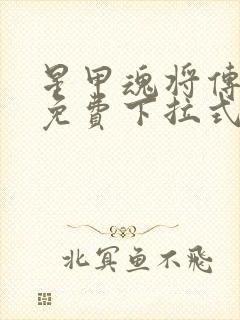 星甲魂将傳
免費下拉式
北冥鱼不飛